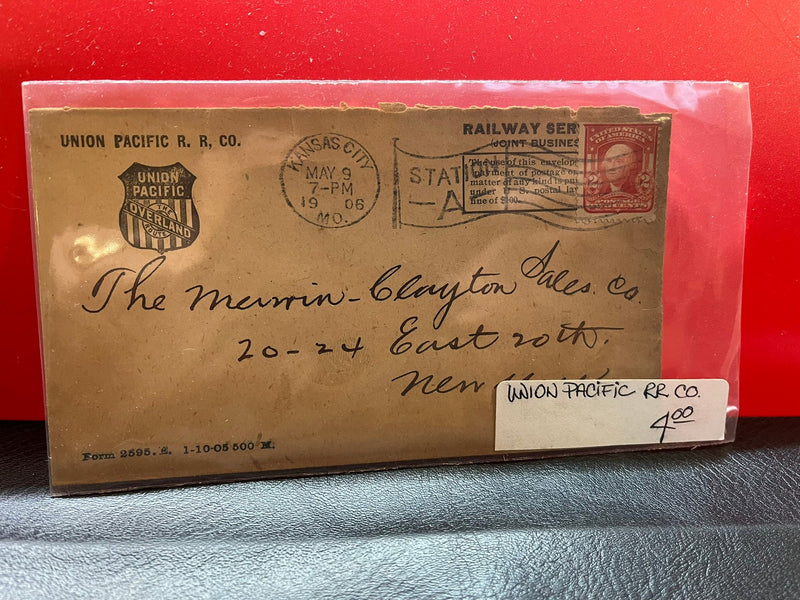 UNION PACIFIC R. R, CO.
UNION
PACIFIC
THE
OVERLAND
ROUTE
KANSAS CITY
MAY 9
7-PM
19 06
MO.
STATI
A
RAILWAY SER
(JOINT BUSINES
The use of this envelope
payment of postage on
matter of any kind is pu
under U. S. postal la
fine of $300.
UNITED STATES
OF AMERICA
2 2
POSTAGE
The Merwin-Clayton Sales. Co.
20-24 East 20th.
New
Form 2595. E. 1-10-05 500 M.
UNION PACIFIC RR. CO.
4.00